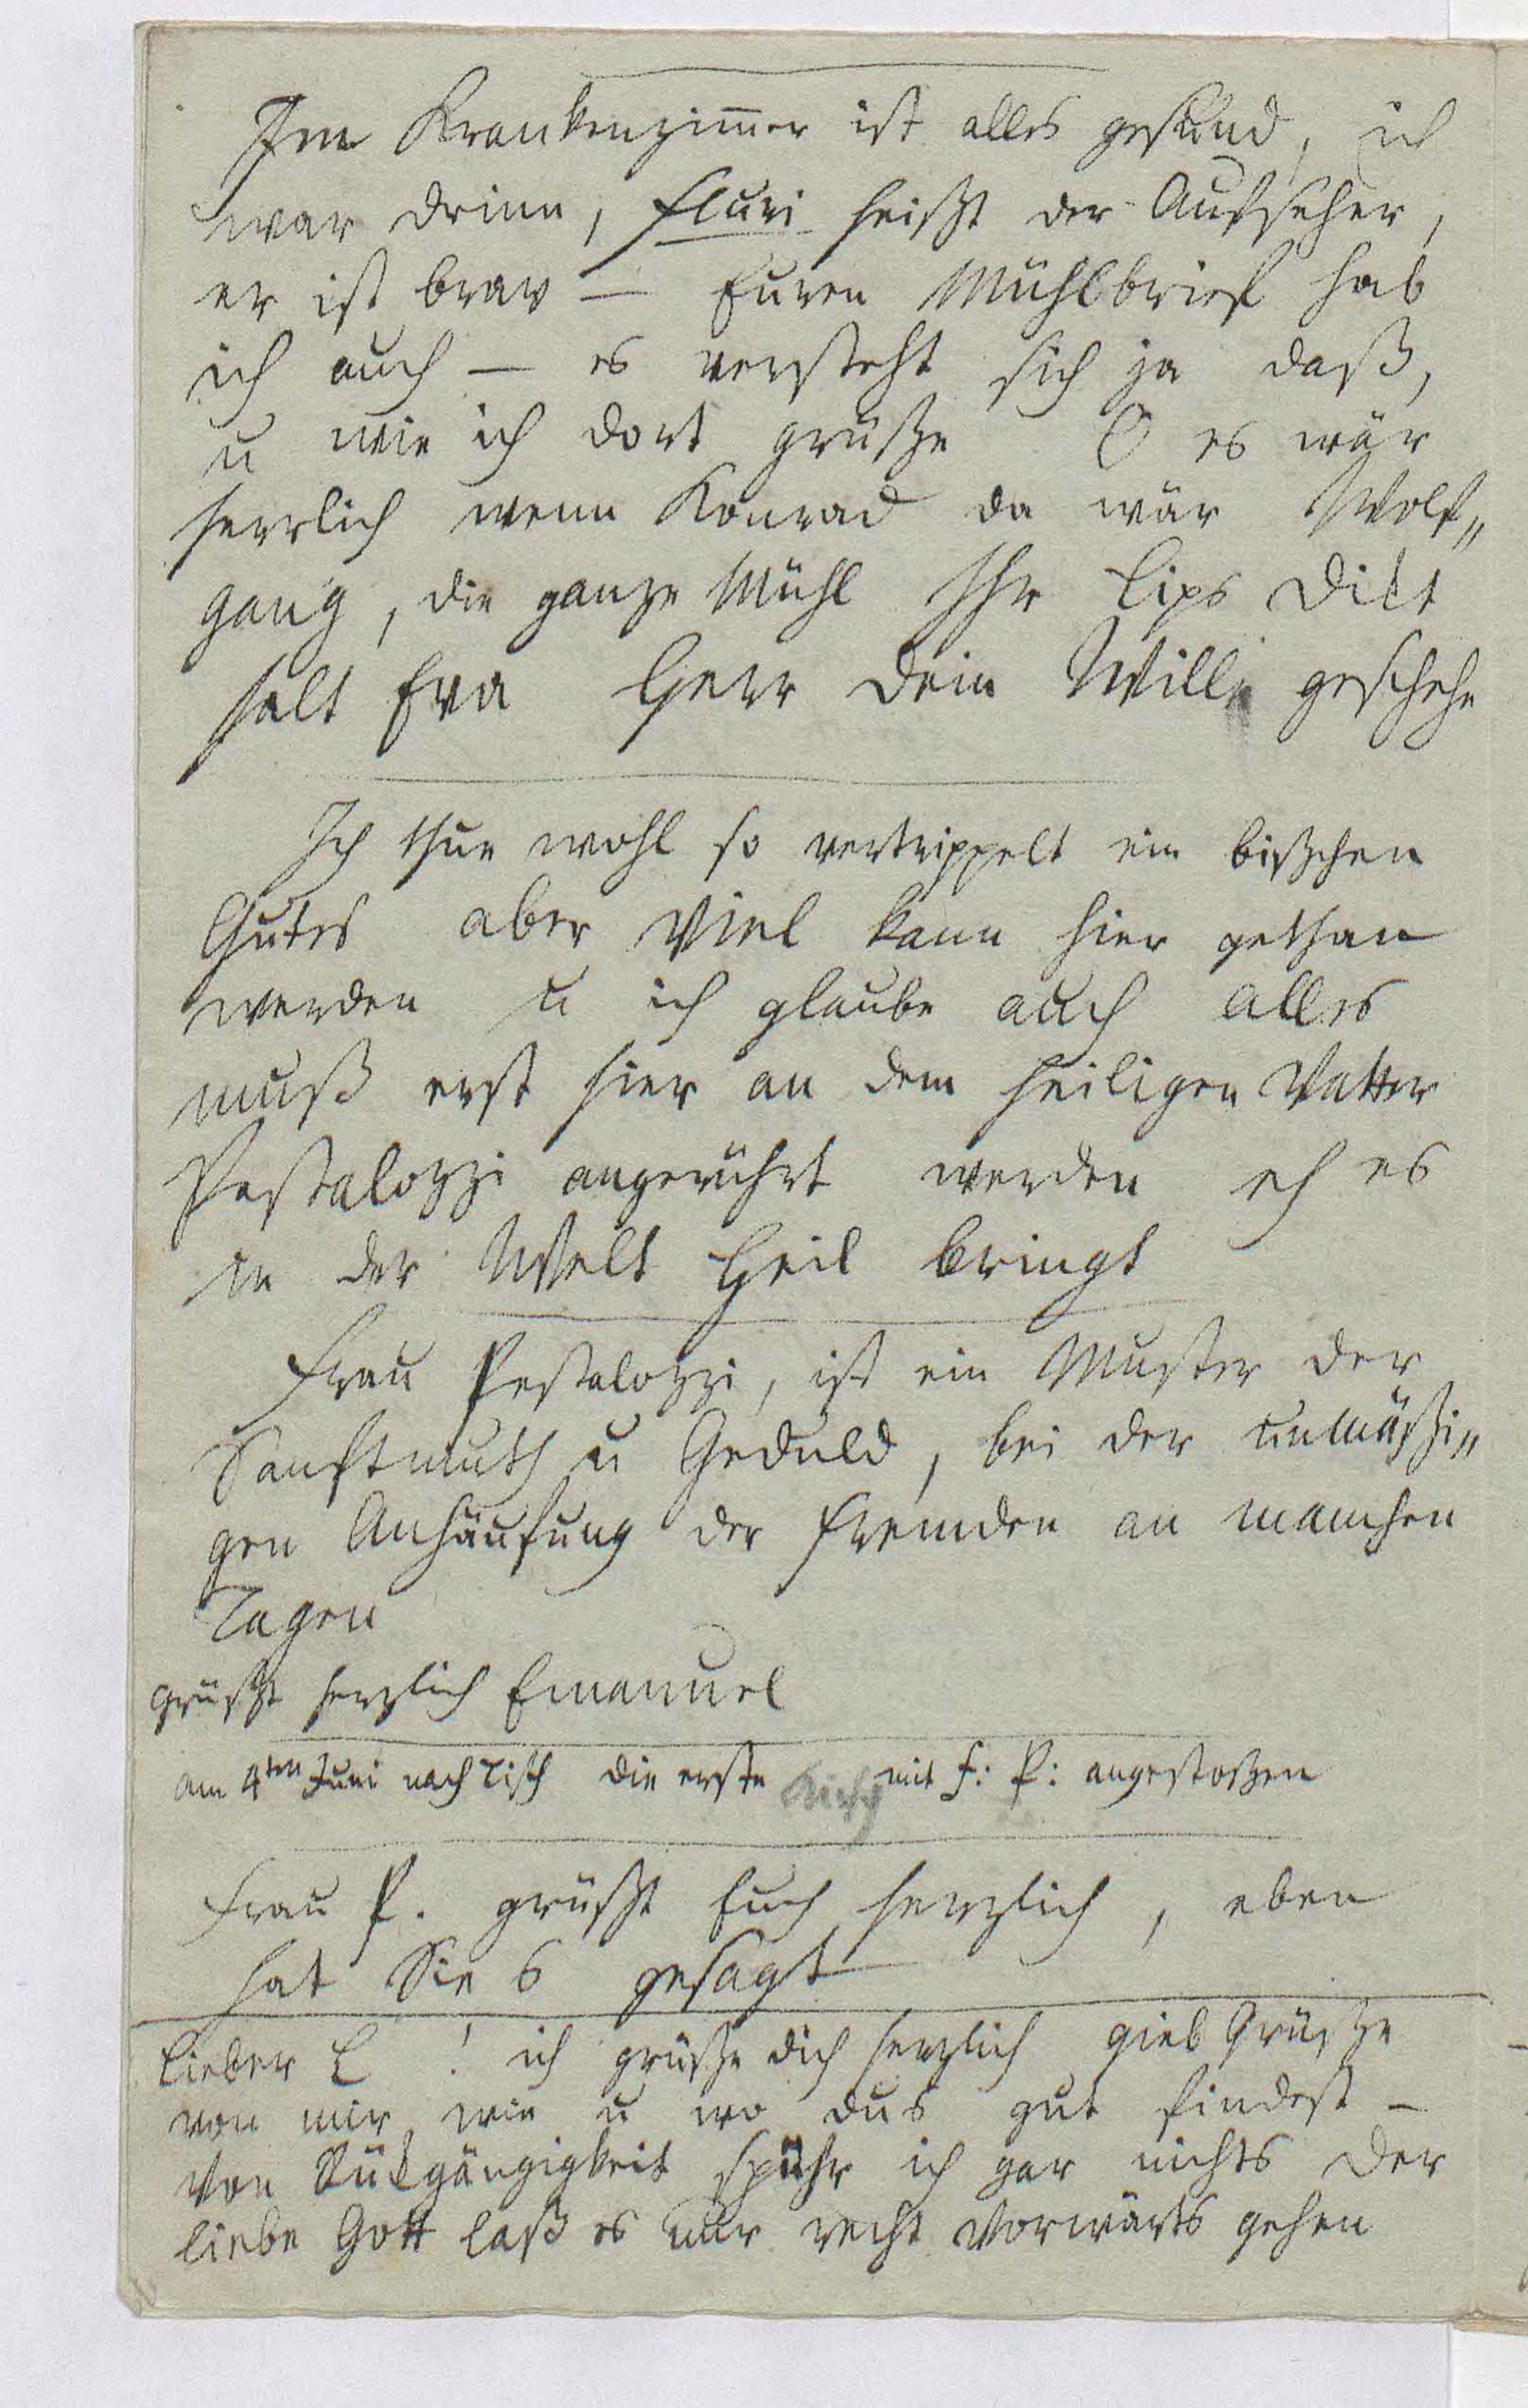 Im Krankenzim̄er ist alles gesund, ich
war drinn, Fluri heißt der Aufseher,
er ist brav — Euren Mühlbrief hab
ich auch — es versteht sich ja daß,
u wie ich dort grüße O es wär
herrlich wenn Konrad da wär Wolf„
gang, die ganze Mühl Ihr Lips
halt Eva Herr dein Wille geschehe
Ich thue wohl so vertrippelt ein bißchen
Gutes aber Viel kann hier gethan
werden u ich glaube auch alles
muß erst hier an dem heiligen Vatter
Pestalozzi angerührt werden eh es
in der Welt Heil bringt
Frau Pestalozzi, ist ein Muster der
Sanftmuth u Geduld, bei der unmäßi„
gen Anhäufung der Fremden an manchen
Tagen
grüßt herzlich Emanuel
am 4ten Juni nach Tisch die erste mit F: P: angestoßen
Frau P. grüßt Euch herzlich, eben
hat Sie s gesagt
Lieber L ! ich grüße dich herzlich gieb Grüße
von mir wie u wo dus gut findest —
Von Rükgängigkeit spühr ich gar nichts der
liebe Gott laß es nur recht vorwärts gehen